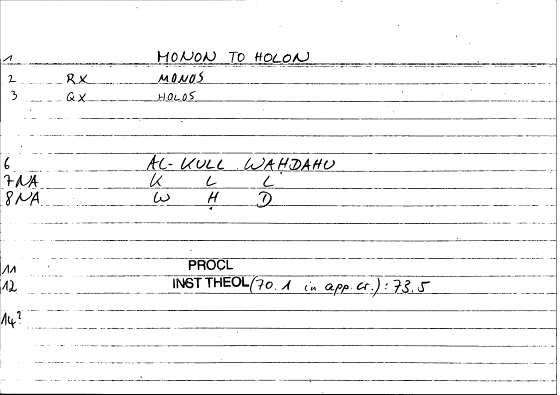 1 MONON TO HOLON
2 RX MONOS
3 QX HOLOS
6 AL-KULL WAḤDAHU
7NA K L L
8NA W Ḥ D
11 PROCL
12 INST THEOL (70.1 in app. cr.): 73.5
14?